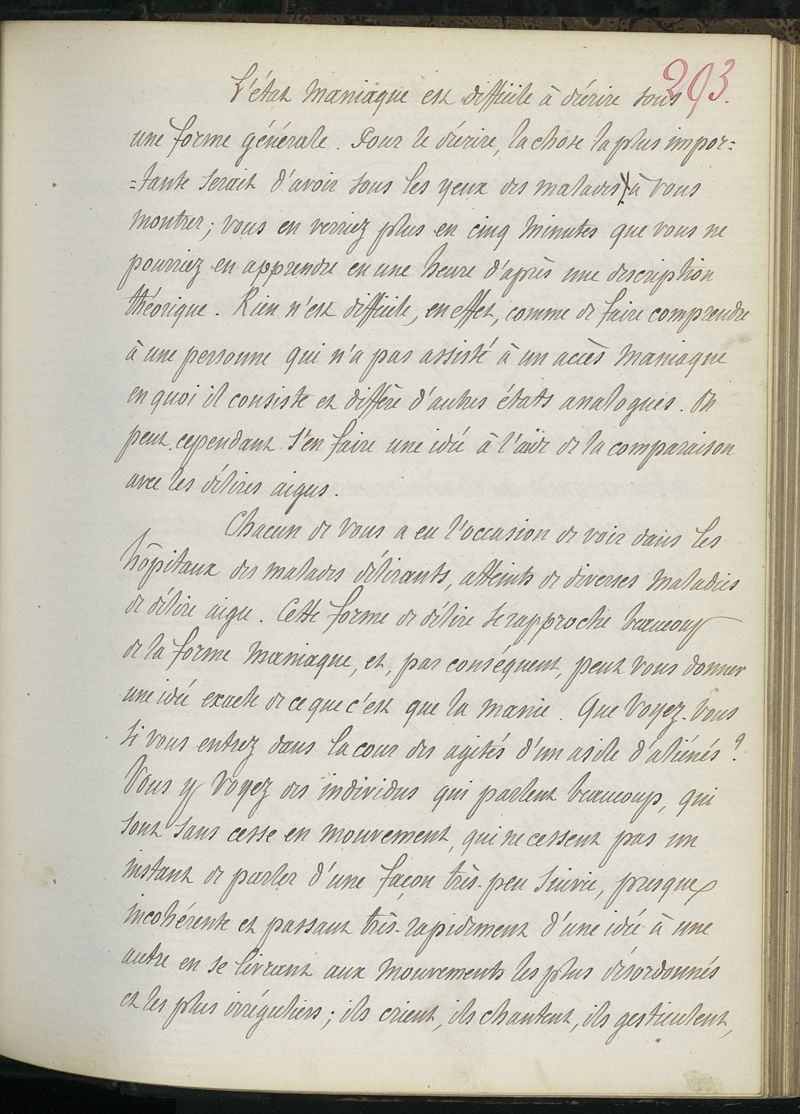 293.
L'état maniaque est difficile à décrire sous
une forme générale. Pour le décrire, la chose la plus impor=
=tante serait d'avoir sous les yeux des malades à vous
montrer; vous en verriez plus en cinq minutes que vous ne
pourriez en apprendre en une heure d'après une description
théorique. Rien n'est difficile, en effet, comme de faire comprendre
à une personne qui n'a pas assisté à un accès maniaque
en quoi il consiste et diffère d'autres états analogues. On
peut cependant s'en faire une idée à l'aide de la comparaison
avec les délires aigus.
Chacun de vous a eu l'occasion de voir dans les
hôpitaux des malades délirants, atteints de diverses maladies
de délire aigu. Cette forme de délire se rapproche beaucoup
de la forme maniaque, et, par conséquent, peut vous donner
une idée exacte de ce que c'est que la manie. Que voyez-vous
si vous entrez dans la cour des agités d'un asile d'aliénés?
Vous y voyez des individus qui parlent beaucoup, qui
sont sans cesse en mouvement, qui ne cessent pas un
instant de parler d'une façon très-peu suivie, presque
incohérente et passant très-rapidement d'une idée à une
autre en se livrant aux mouvements les plus désordonnés
et les plus irréguliers; ils crient, ils chantent, ils gesticulent,